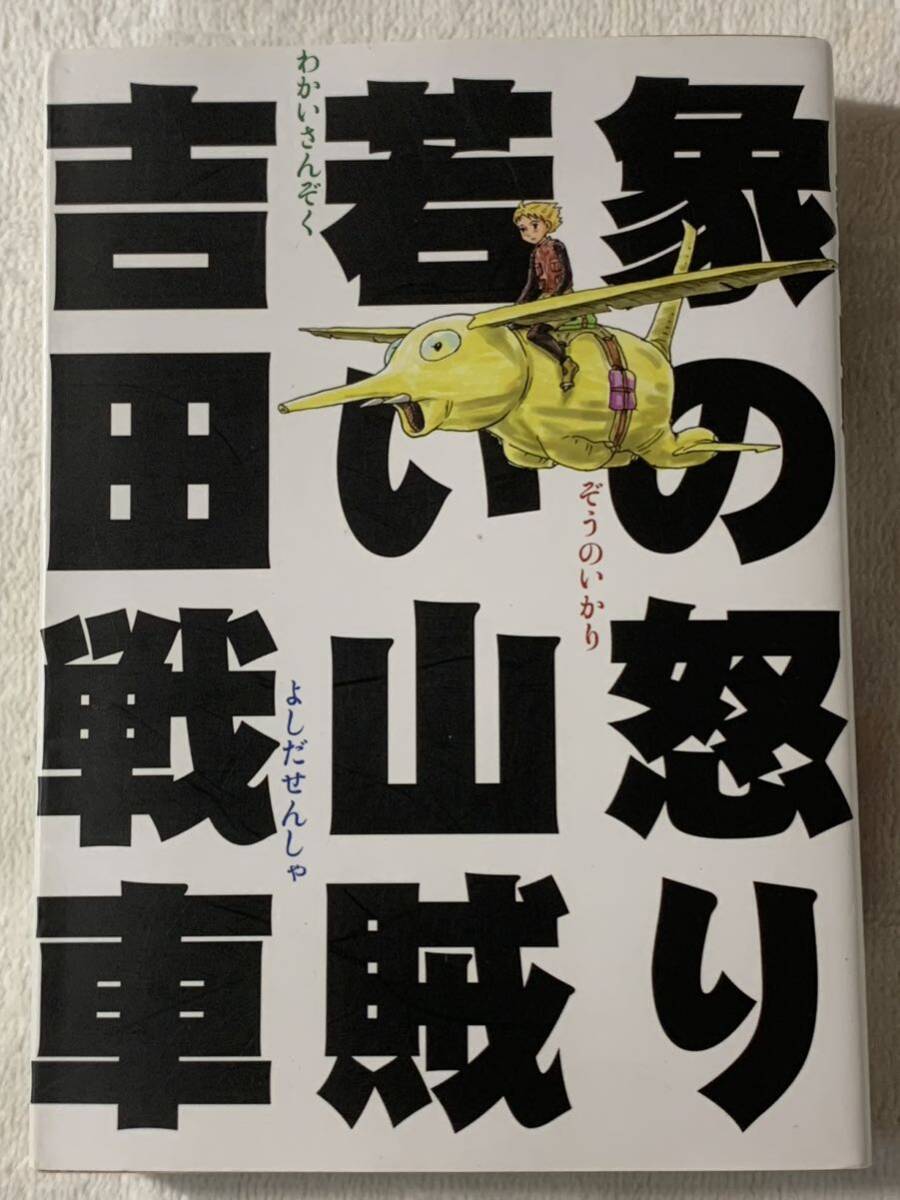 象の怒り
ぞうのいかり
若い山賊
わかいさんぞく
吉田戦車
よしだせんしゃ